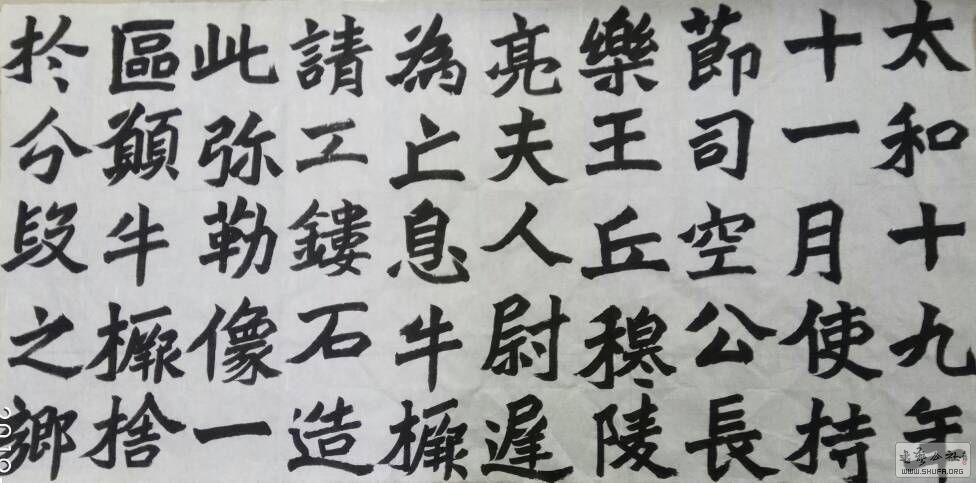 太和十九年
十一月使持
節司空公長
樂王丘穆陵
亮夫人尉遲
為亡息牛橛
請工鏤石造
此弥勒像一
區願牛橛捨
於分段之鄉
WWW.SHUFA.ORG